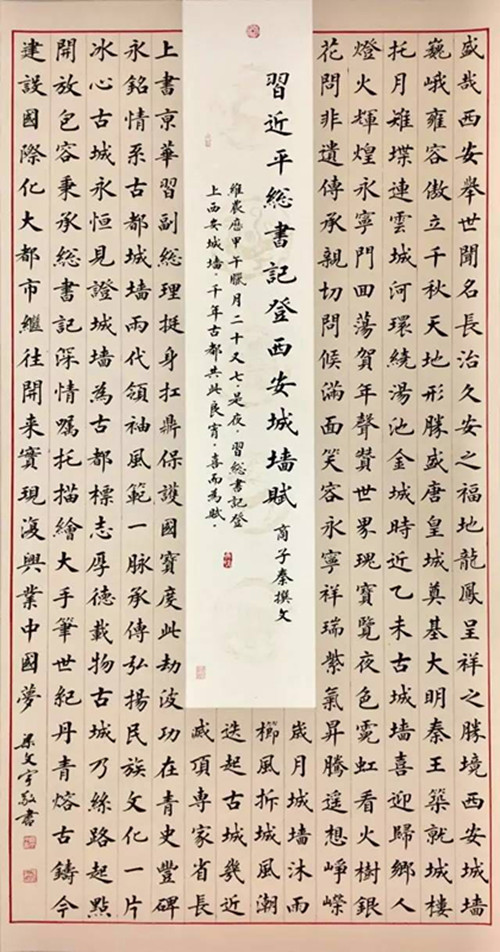 習近平總書記登西安城墻賦 商子秦撰文
維農曆甲午臘月二十又七,是夜,習總書記登
上西安城墻,千年古都共此良宵,喜而為賦。
盛哉西安舉世聞名長治久安之福地龍鳳呈祥之勝境西安城墻
巍峨雍容傲立千秋天地形勝盛唐皇城奠基大明秦王築就城樓
托月雉堞連雲城河環繞湯池金城時近乙未古城墻喜迎歸鄉人
燈火輝煌永寧門回蕩賀年聲贊世界瑰寶覽夜色霓虹看火樹銀
花問非遺傳承親切問候滿面笑容永寧祥瑞紫氣昇騰遥想崢嶸
歲月城墻沐雨
櫛風折城風潮
迭起古城幾近
滅頂專家省長
上書京華習副總理挺身扛鼎保護國寶度此劫波功在青史豐碑
永銘情系古都城墻兩代領袖風範一脉承傳弘揚民族文化一片
冰心古城永恒見證城墻為古都標志厚德載物古城乃絲路起點
開放包容秉承總書記深情囑托描繪大手筆世紀丹青熔古鑄今
建設國際化大都市繼往開来實現復興業中國夢
梁文宇敬書